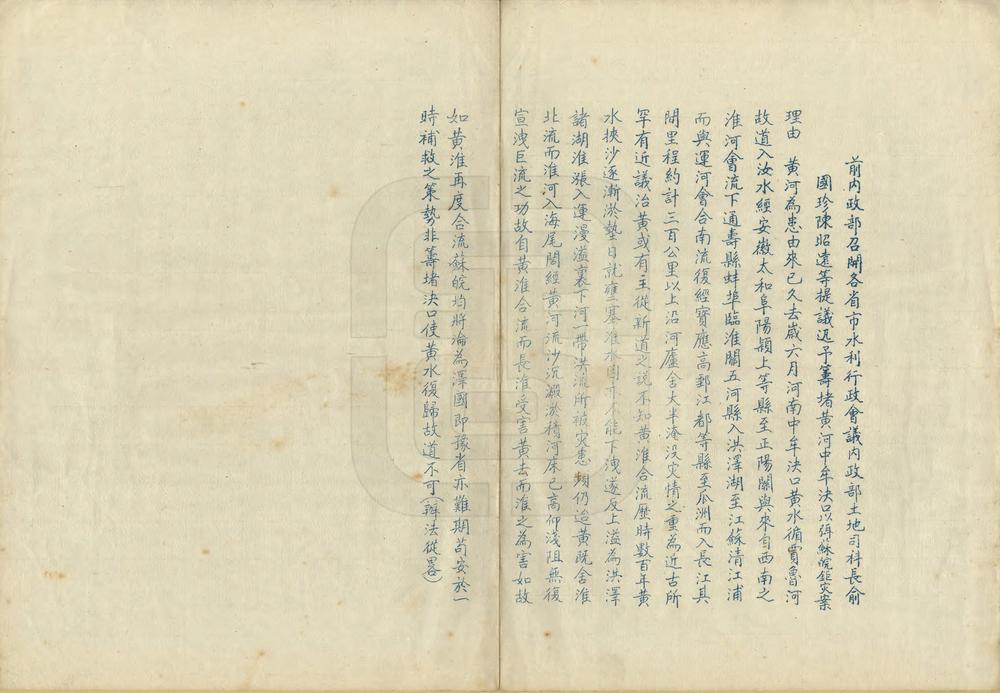 前內政部召開各省市水利行政會議內政部土地司科長俞
國珍陳昭遠等提議迅予籌堵黃河中牟決口以弭蘇皖鉅災案
理由　黃河為患由來已久去歲六月河南中牟決口黃水循賈魯河
故道入汝水經安徽太和阜陽潁上等縣至正陽關與來自西南之
淮河會流下通壽縣蚌埠臨淮關五河縣入洪澤湖至江蘇清江浦
而與運河會合南流復經寶應高郵江都等縣至瓜洲而入長江其
間里程約計三百公里以上沿河廬舍大半淹沒災情之重為近古所
罕有近議治黃或有主從新道之說不知黃淮合流歷時數百年黃
水挾沙逐漸淤墊日就壅塞淮水因亦不能下洩遂反上溢為洪澤
諸湖淮漲入運漫溢裏下河一帶洪流所被災患頻仍迨黃既舍淮
北流而淮河入海尾閭經黃河流沙沉澱淤積河床已高仰淺阻無復
宣洩巨流之功故自黃淮合流而長淮受害黃去而淮之為害如故
如黃淮再度合流蘇皖均將淪為澤國即豫省亦難期苟安於一
時補救之策勢非籌堵決口使黃水復歸故道不可（辦法從畧）